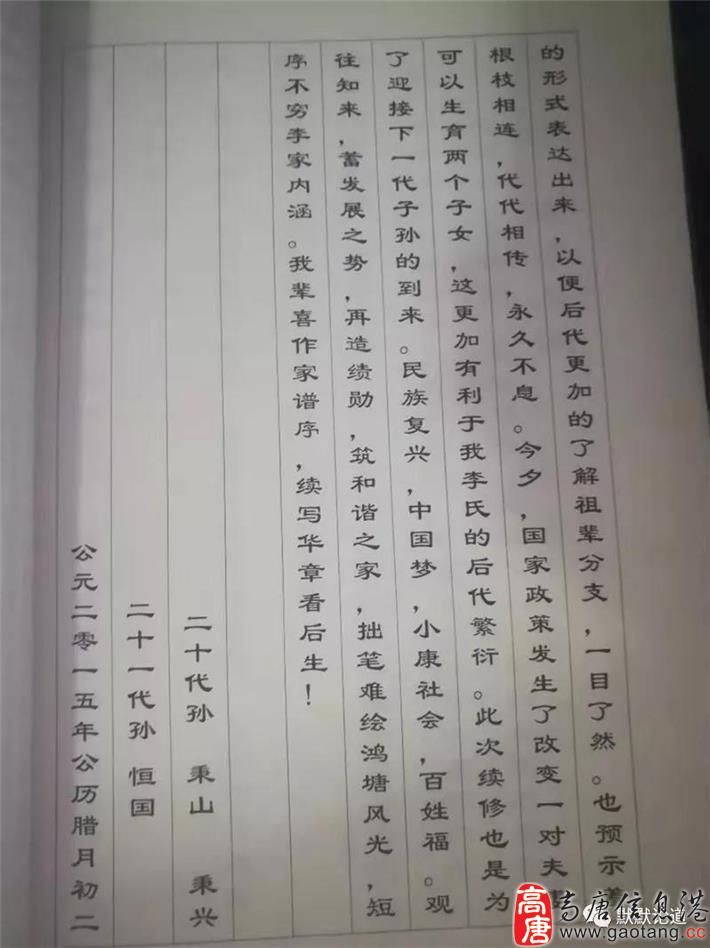 的形式表达出来，以便后代更加的了解祖辈分支，一目了然。也预示着
根枝相连，代代相传，永久不息。今夕，国家政策发生了改变一对夫
可以生育两个子女，这更加有利于我李氏的后代繁衍。此次续修也是为
了迎接下一代子孙的到来。民族复兴，中国梦，小康社会，百姓福。观
往知来，蓄发展之势，再造绩勋，筑和谐之家，拙笔难绘鸿塘风光，短
序不穷李家内涵。我辈喜作家谱序，续写华章看后生！
二十代孙 秉山 秉兴
二十一代孙 恒国
公元二零一五年公历腊月初二
默默论道
高唐 高唐信息港
www.gaotang.cc